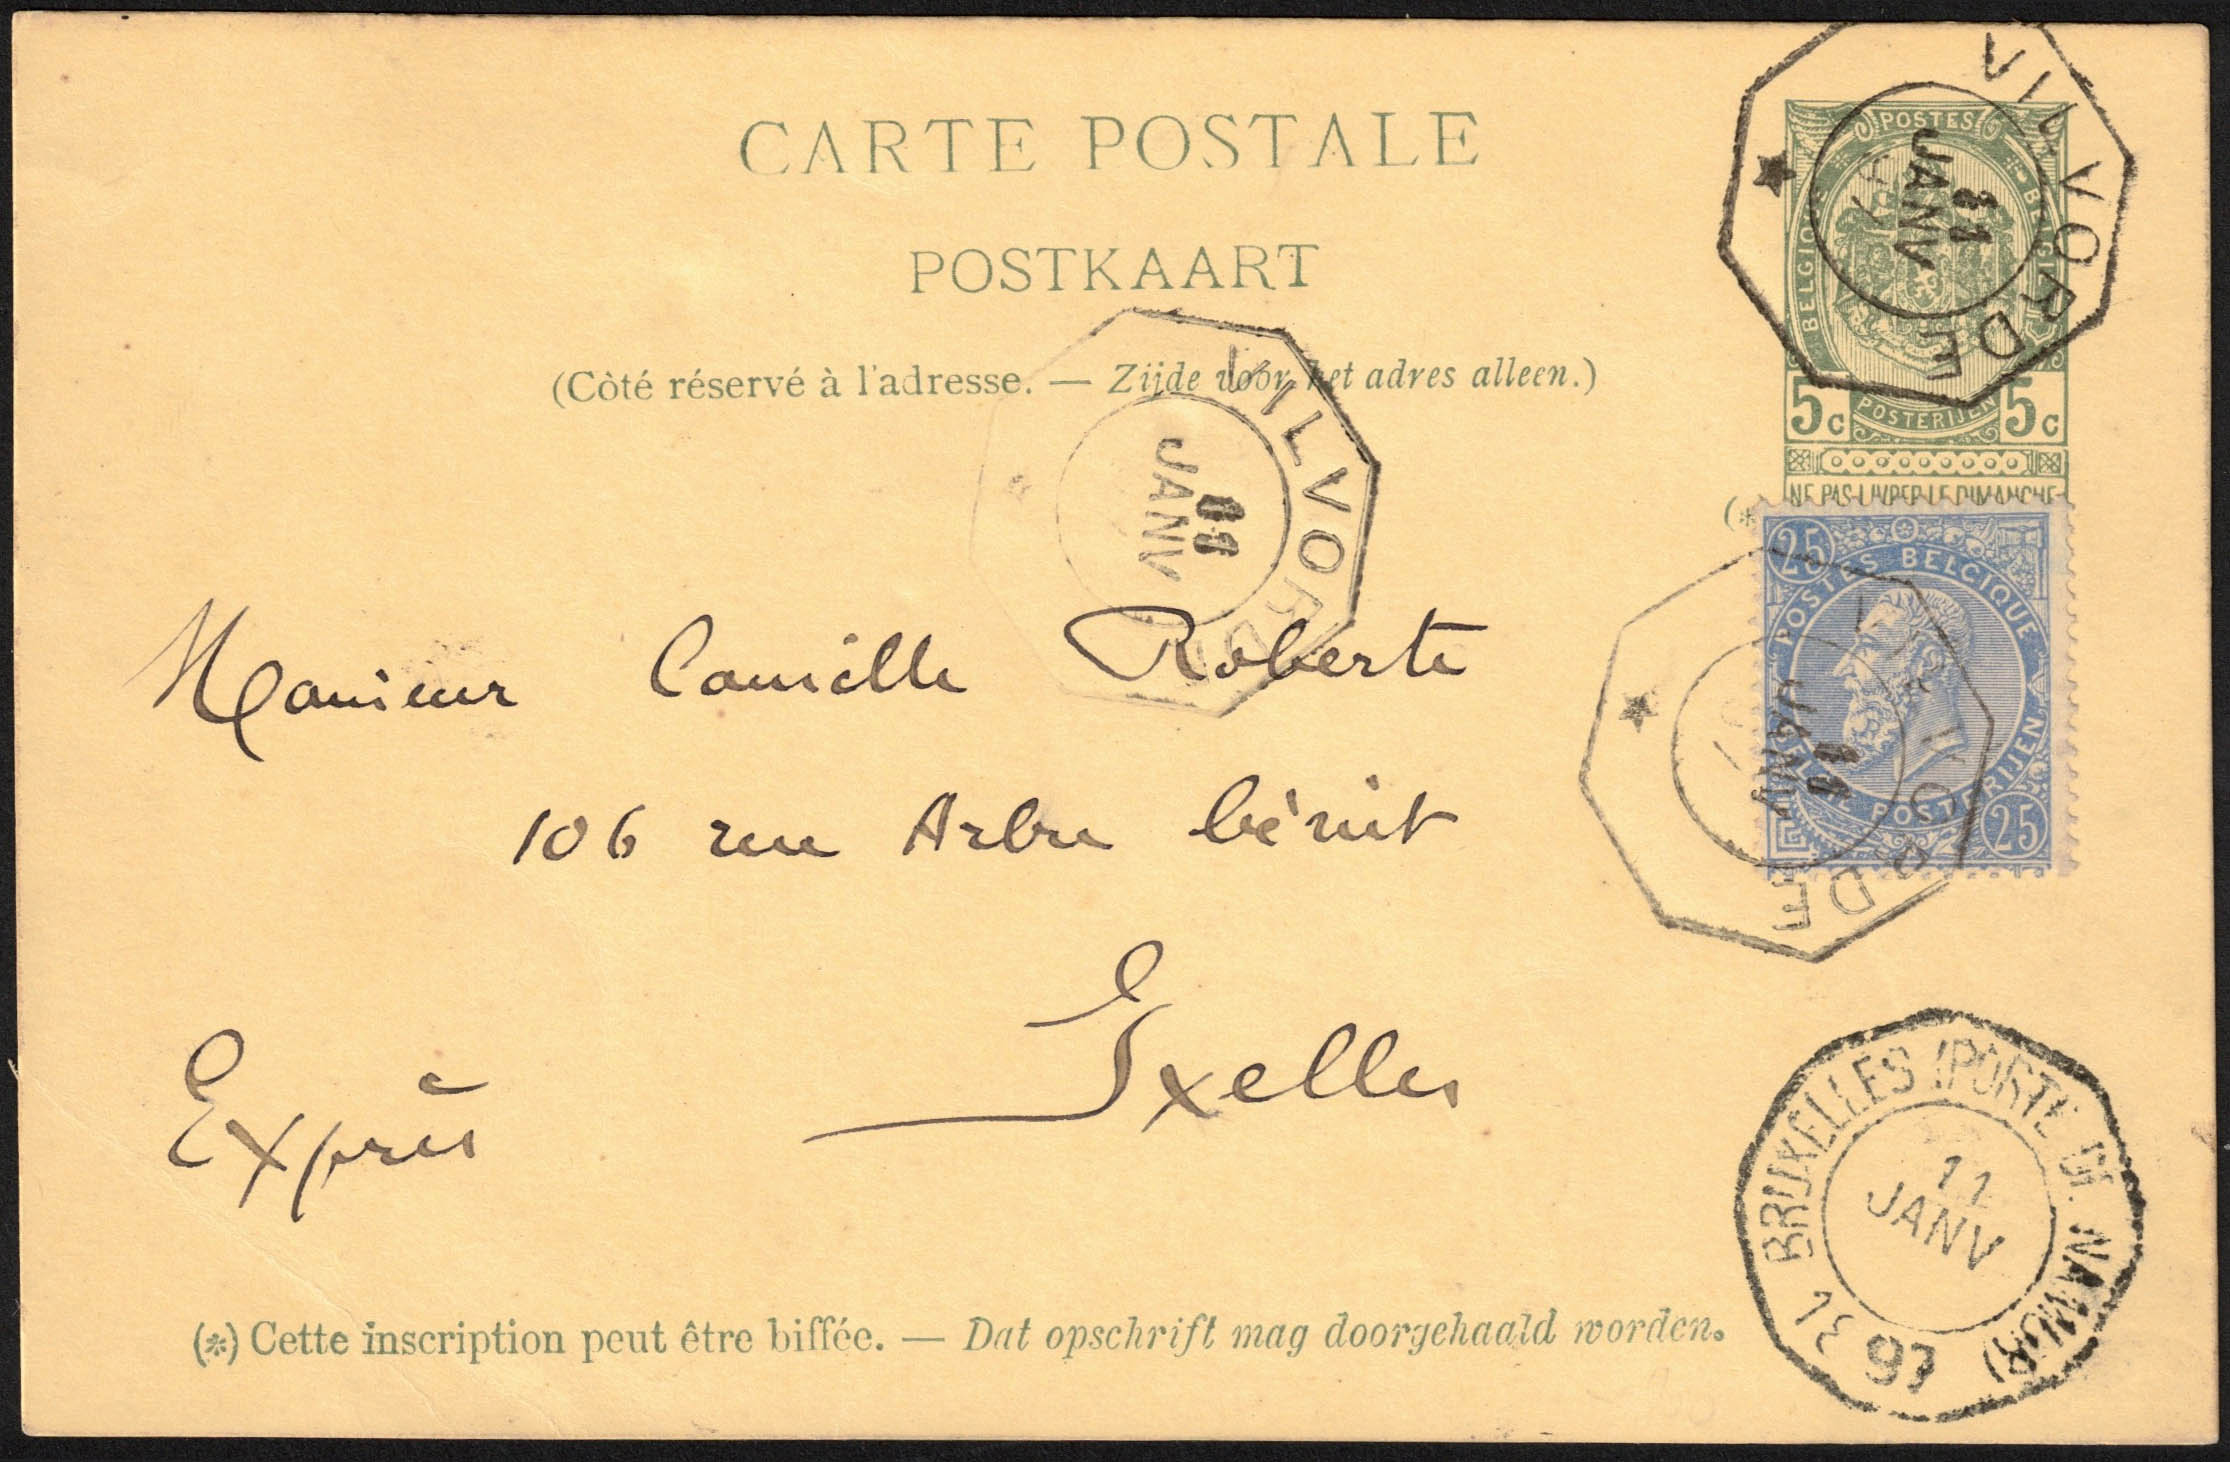 CARTE POSTALE
POSTKAART
(Côté réservé à l'adresse. — Zijde voor het adres alleen.)
POSTES
BELGIQUE BELGIË
5c POSTERIJEN 5c
NE PAS LIVRER LE DIMANCHE
(*
VILVORDE
11
JANV
VILVORD
11
JANV
25
POSTES BELGIQUE
BELGIE POSTERIJEN
25
VILVORDE
11
JANV
Monsieur Camille Roberte
106 rue Arbre bénit
Ixelles
Exprès
BRUXELLES (PORTE DE NAMUR)
11
JANV
13 97
(*) Cette inscription peut être biffée. — Dat opschrift mag doorgehaald worden.